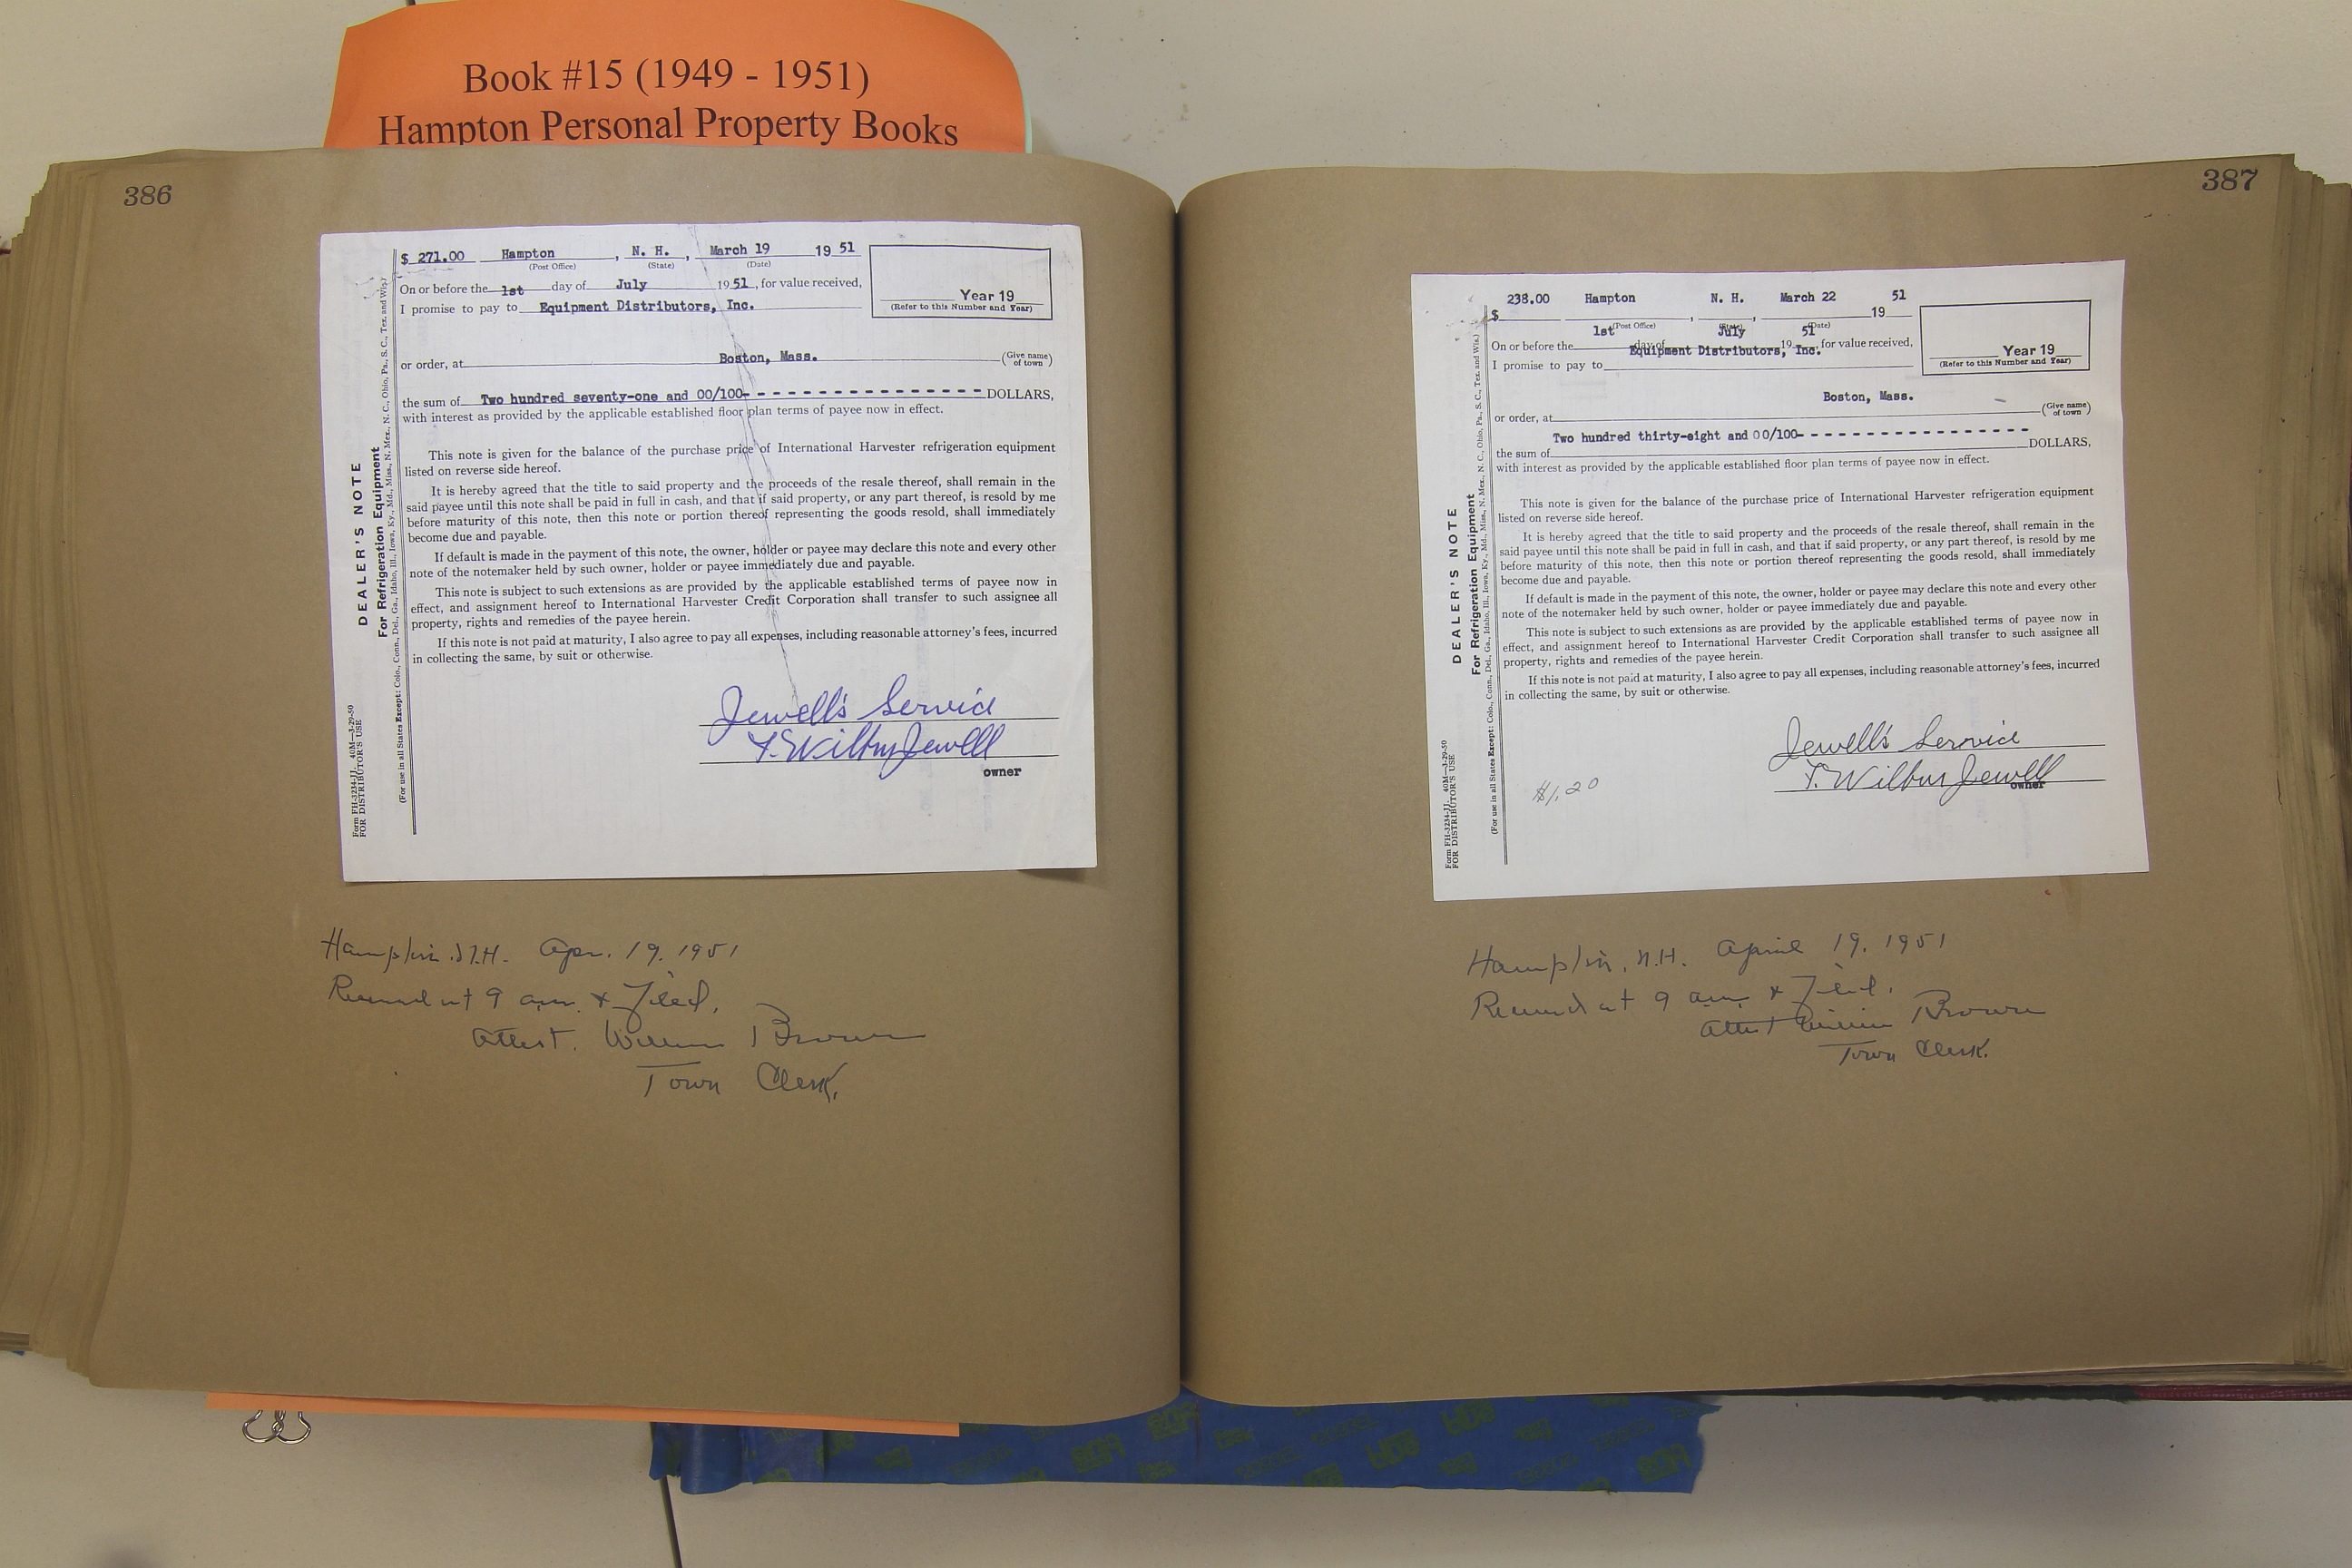 Book #15 (1949 - 1951)
Hampton Personal Property Books
386
$ 271.00 Hampton, N. H., March 19 19 51
(Post Office) (State) (Date)
On or before the 1st day of July 19 51, for value received,
I promise to pay to Equipment Distributors, Inc.
Year 19
(Refer to this Number and Year)
or order, at Boston, Mass. (Give name of town)
the sum of Two hundred seventy-one and 00/100- - - - - - - - - - - - - - - - - DOLLARS,
with interest as provided by the applicable established floor plan terms of payee now in effect.
This note is given for the balance of the purchase price of International Harvester refrigeration equipment
listed on reverse side hereof.
It is hereby agreed that the title to said property and the proceeds of the resale thereof, shall remain in the
said payee until this note shall be paid in full in cash, and that if said property, or any part thereof, is resold by me
before maturity of this note, then this note or portion thereof representing the goods resold, shall immediately
become due and payable.
If default is made in the payment of this note, the owner, holder or payee may declare this note and every other
note of the notemaker held by such owner, holder or payee immediately due and payable.
This note is subject to such extensions as are provided by the applicable established terms of payee now in
effect, and assignment hereof to International Harvester Credit Corporation shall transfer to such assignee all
property, rights and remedies of the payee herein.
If this note is not paid at maturity, I also agree to pay all expenses, including reasonable attorney's fees, incurred
in collecting the same, by suit or otherwise.
Jewell's Service
F. Wilbur Jewell
owner
DEALER'S NOTE
For Refrigeration Equipment
(For use in all States Except: Colo., Conn., Del., Ga., Idaho, Ill., Iowa, Ky., Md., Miss., N. Mex., N. C., Ohio, Pa., S. C., Tex. and Wis.)
Form FH-3234-JJ. 40M-3-29-50
FOR DISTRIBUTOR'S USE
Hampton N.H. Apr. 19, 1951
Received at 9 am. & Filed,
Attest. William Brown
Town Clerk.
387
238.00 Hampton N. H. March 22 51
$ , , 19
(Post Office) (State) (Date)
1st July 51
On or before the day of 19 , for value received,
Equipment Distributors, Inc.
I promise to pay to
Year 19
(Refer to this Number and Year)
Boston, Mass.
or order, at (Give name of town)
Two hundred thirty-eight and 00/100- - - - - - - - - - - - - - - - -
the sum of DOLLARS,
with interest as provided by the applicable established floor plan terms of payee now in effect.
This note is given for the balance of the purchase price of International Harvester refrigeration equipment
listed on reverse side hereof.
It is hereby agreed that the title to said property and the proceeds of the resale thereof, shall remain in the
said payee until this note shall be paid in full in cash, and that if said property, or any part thereof, is resold by me
before maturity of this note, then this note or portion thereof representing the goods resold, shall immediately
become due and payable.
If default is made in the payment of this note, the owner, holder or payee may declare this note and every other
note of the notemaker held by such owner, holder or payee immediately due and payable.
This note is subject to such extensions as are provided by the applicable established terms of payee now in
effect, and assignment hereof to International Harvester Credit Corporation shall transfer to such assignee all
property, rights and remedies of the payee herein.
If this note is not paid at maturity, I also agree to pay all expenses, including reasonable attorney's fees, incurred
in collecting the same, by suit or otherwise.
Jewell's Service
F. Wilbur Jewell
owner
$1.20
DEALER'S NOTE
For Refrigeration Equipment
(For use in all States Except: Colo., Conn., Del., Ga., Idaho, Ill., Iowa, Ky., Md., Miss., N. Mex., N. C., Ohio, Pa., S. C., Tex. and Wis.)
Form FH-3234-JJ. 40M-3-29-50
FOR DISTRIBUTOR'S USE
Hampton, N.H. April 19, 1951
Received at 9 am & Filed.
Attest William Brown
Town Clerk.